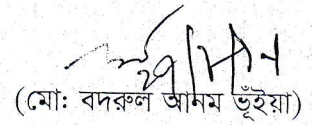 (মো: বদরুল আনম ভূঁইয়া)